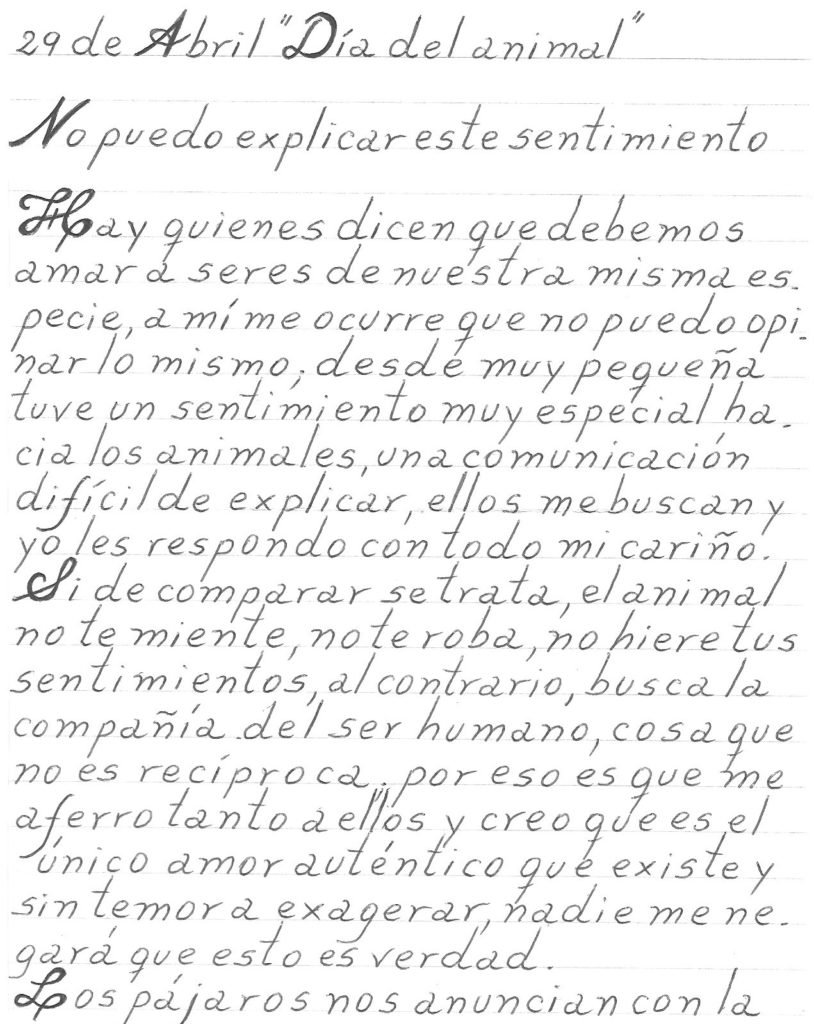 29 de Abril "Día del animal"
No puedo explicar este sentimiento
Hay quienes dicen que debemos
amar a seres de nuestra misma es-
pecie, a mí me ocurre que no puedo opi-
nar lo mismo; desde muy pequeña
tuve un sentimiento muy especial ha-
cia los animales, una comunicación
difícil de explicar, ellos me buscan y
yo les respondo con todo mi cariño.
Si de comparar se trata, el animal
no te miente, no te roba, no hiere tus
sentimientos, al contrario, busca la
compañía del ser humano, cosa que
no es recíproca; por eso es que me
aferro tanto a "ellos" y creo que es el
único amor auténtico que existe y
sin temor a exagerar, nadie me ne-
gará que esto es verdad.
Los pájaros nos anuncian con la